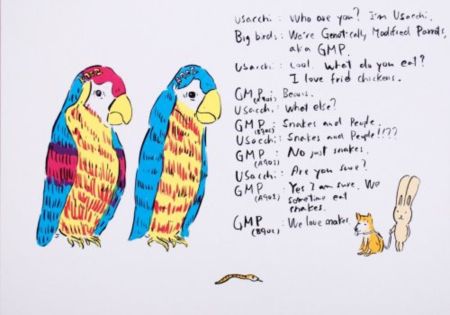 usacchi : Who are you? I'm Usacchi.
Big birds : We're Genetically Modified Parrots,
aka GMP.
usacchi : Cool. What do you eat?
I love frid chickens.
GMP : Beans.
(A901)
Usacchi : What else?
GMP : Snakes and People.
(B901)
Usacchi : Snakes and People!!??
GMP : No just snakes.
(A901)
Usacchi : Are you sure?
GMP : Yes I am sure. We
(A901) sometime eat
snakes.
GMP : We love snakes.
(B901)